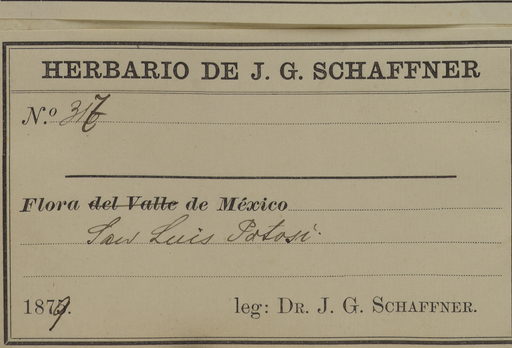 HERBARIO DE J. G. SCHAFFNER
N.º 317
Flora del Valle de México
San Luis Potosí.
1879.
leg: DR. J. G. SCHAFFNER.